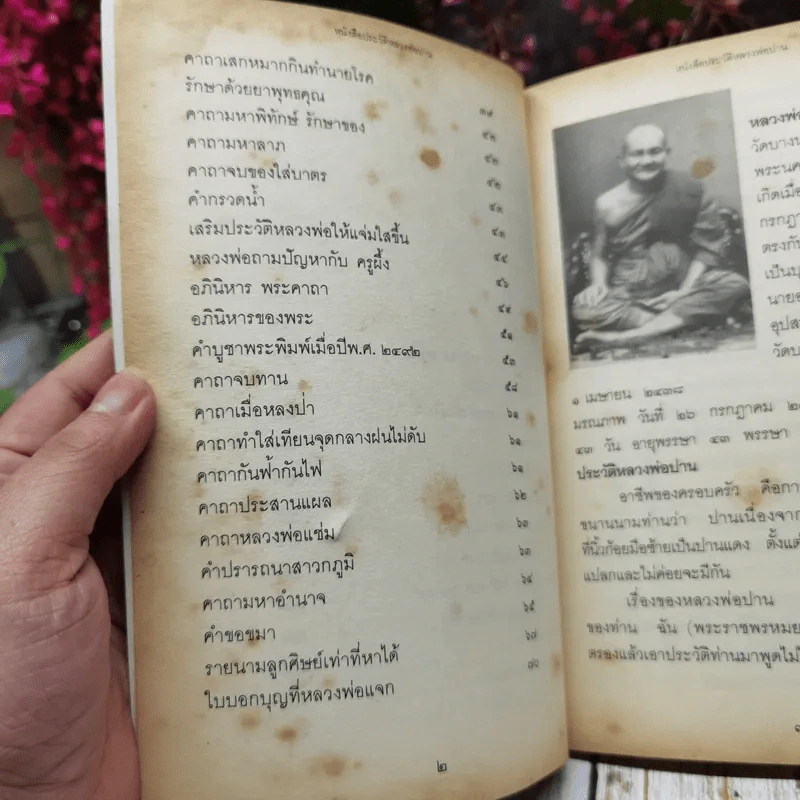 หนังสือประวัติหลวงพ่อปาน
คาถาเสกหมากกินทำนายโรค ๓๙
รักษาด้วยยาพุทธคุณ ๔๒
คาถามหาพิทักษ์ รักษาของ ๔๒
คาถามหาลาภ ๔๒
คาถาจบของใส่บาตร ๔๓
คำกรวดน้ำ ๔๓
เสริมประวัติหลวงพ่อให้แจ่มใสขึ้น ๔๔
หลวงพ่อถามปัญหากับ ครูผึ้ง ๔๖
อภินิหาร พระคาถา ๔๙
อภินิหารของพระ ๕๑
คำบูชาพระพิมพ์เมื่อปีพ.ศ. ๒๔๙๒ ๕๓
คาถาจบทาน ๕๘
คาถาเมื่อหลงป่า ๖๑
คาถาทำใส่เทียนจุดกลางฝนไม่ดับ ๖๑
คาถากันฟ้ากันไฟ ๖๑
คาถาประสานแผล ๖๒
คาถาหลวงพ่อแช่ม ๖๓
คำปรารถนาสาวกภูมิ ๖๓
คาถามหาอำนาจ ๖๔
คำขอขมา ๖๕
รายนามลูกศิษย์เท่าที่หาได้ ๖๗
ใบบอกบุญที่หลวงพ่อแจก ๗๐
๒
หนังสือประวัติหลวงพ่อปาน
หลวงพ่อ
วัดบางน
พระนค
เกิดเมื่อ
กรกฎา
ตรงกับ
เป็นบุ
นายอ
อุปส
วัดบ
๑ เมษายน ๒๔๓๘
มรณภาพ วันที่ ๒๖ กรกฎาคม ๒
๔๓ วัน อายุพรรษา ๔๓ พรรษา
ประวัติหลวงพ่อปาน
อาชีพของครอบครัว คือกา
ขนานนามท่านว่า ปานเนื่องจาก
ที่นิ้วก้อยมือซ้ายเป็นปานแดง ตั้งแต่
แปลกและไม่ค่อยจะมีกัน
เรื่องของหลวงพ่อปาน
ของท่าน ฉัน (พระราชพรหมย
ตรองแล้วเอาประวัติท่านมาพูดไม่ไ